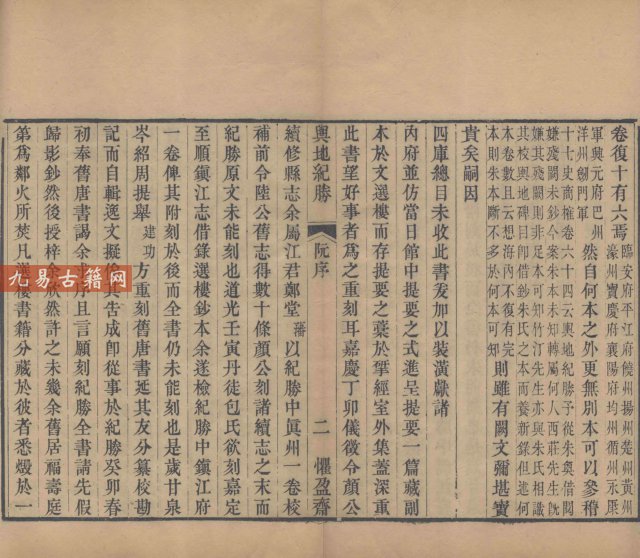 卷復十有六焉臨安府平江府饒州揚州楚州黃州
軍興元府巴州瀛州寶慶府襄陽府均州循州永康
洋州劍門軍然自何本之外更無別本可以參稽
十七史商榷卷六十四云輿地紀勝予從朱奐借閱
嫌殘闕未鈔今案朱本未知轉屬何人西莊先生旣
嫌其殘闕則非足本可知竹汀先生亦與朱氏相識
其校輿地碑目卽借鈔朱氏之本而養新錄但述何
本卷數且云想海內不復有完
本則朱本斷不多於何本可知則雖有闕文彌堪寶
貴矣嗣因
四庫總目未收此書爰加以裝潢獻諸
內府並仿當日館中提要之式進呈提要一篇藏副
本於文選樓而存提要之藁於揅經室外集蓋深重
此書望好事者爲之重刻耳嘉慶丁卯儀徵令顏公
輿地紀勝 阮序 二 懼盈齋
續修縣志余屬江君鄭堂藩以紀勝中眞州一卷校
補前令陸公舊志得數十條顏公刻諸續志之末而
紀勝原文未能刻也道光壬寅丹徒包氏欲刻嘉定
至順鎮江志借錄選樓鈔本余遂檢紀勝中鎮江府
一卷俾其附刻於後而全書仍未能刻也是歲甘泉
岑紹周提舉建功方重刻舊唐書延其友分纂校勘
記而自輯逸文擬
告成卽從事於紀勝癸卯春
初奉舊唐書謁余
序且言願刻紀勝全書請先假
歸影鈔然後授梓余
欣然許之未幾余舊居福壽庭
第爲鄰火所焚凡選樓書籍分藏於彼者悉燬於一
九易古籍网